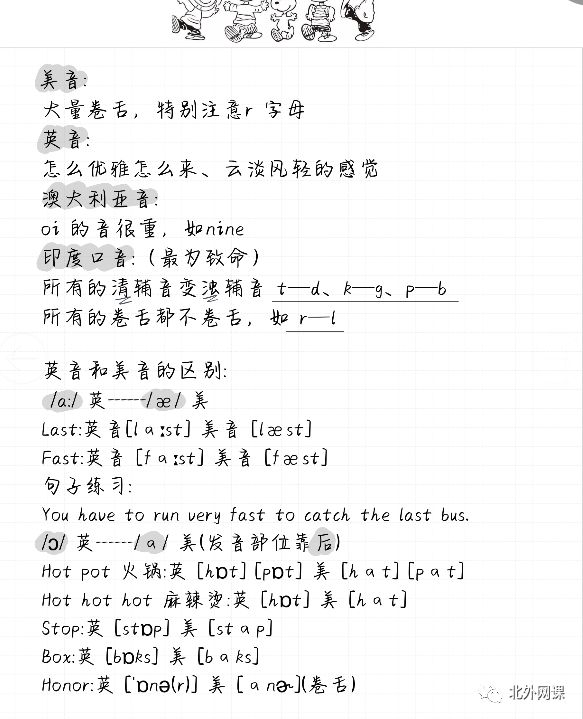 美音:
大量卷舌，特别注意r 字母
英音:
怎么优雅怎么来、云淡风轻的感觉
澳大利亚音:
oi 的音很重，如nine
印度口音:（最为致命）
所有的清辅音变浊辅音 t—d、k—g、p—b
所有的卷舌都不卷舌，如 r—l
英音和美音的区别:
/a:/ 英------/æ/ 美
Last:英音[lɑːst] 美音 [læst]
Fast:英音 [fɑːst] 美音 [fæst]
句子练习:
You have to run very fast to catch the last bus.
/ɔ/ 英------/ɑ/ 美(发音部位靠后)
Hot pot 火锅:英 [hɒt][pɒt] 美 [hɑt][pɑt]
Hot hot hot 麻辣烫:英 [hɒt] 美 [hɑt]
Stop:英 [stɒp] 美 [stɑp]
Box:英 [bɒks] 美 [bɑks]
Honor:英 ['ɒnə(r)] 美 [ɑnɚ](卷舌)
北外网课